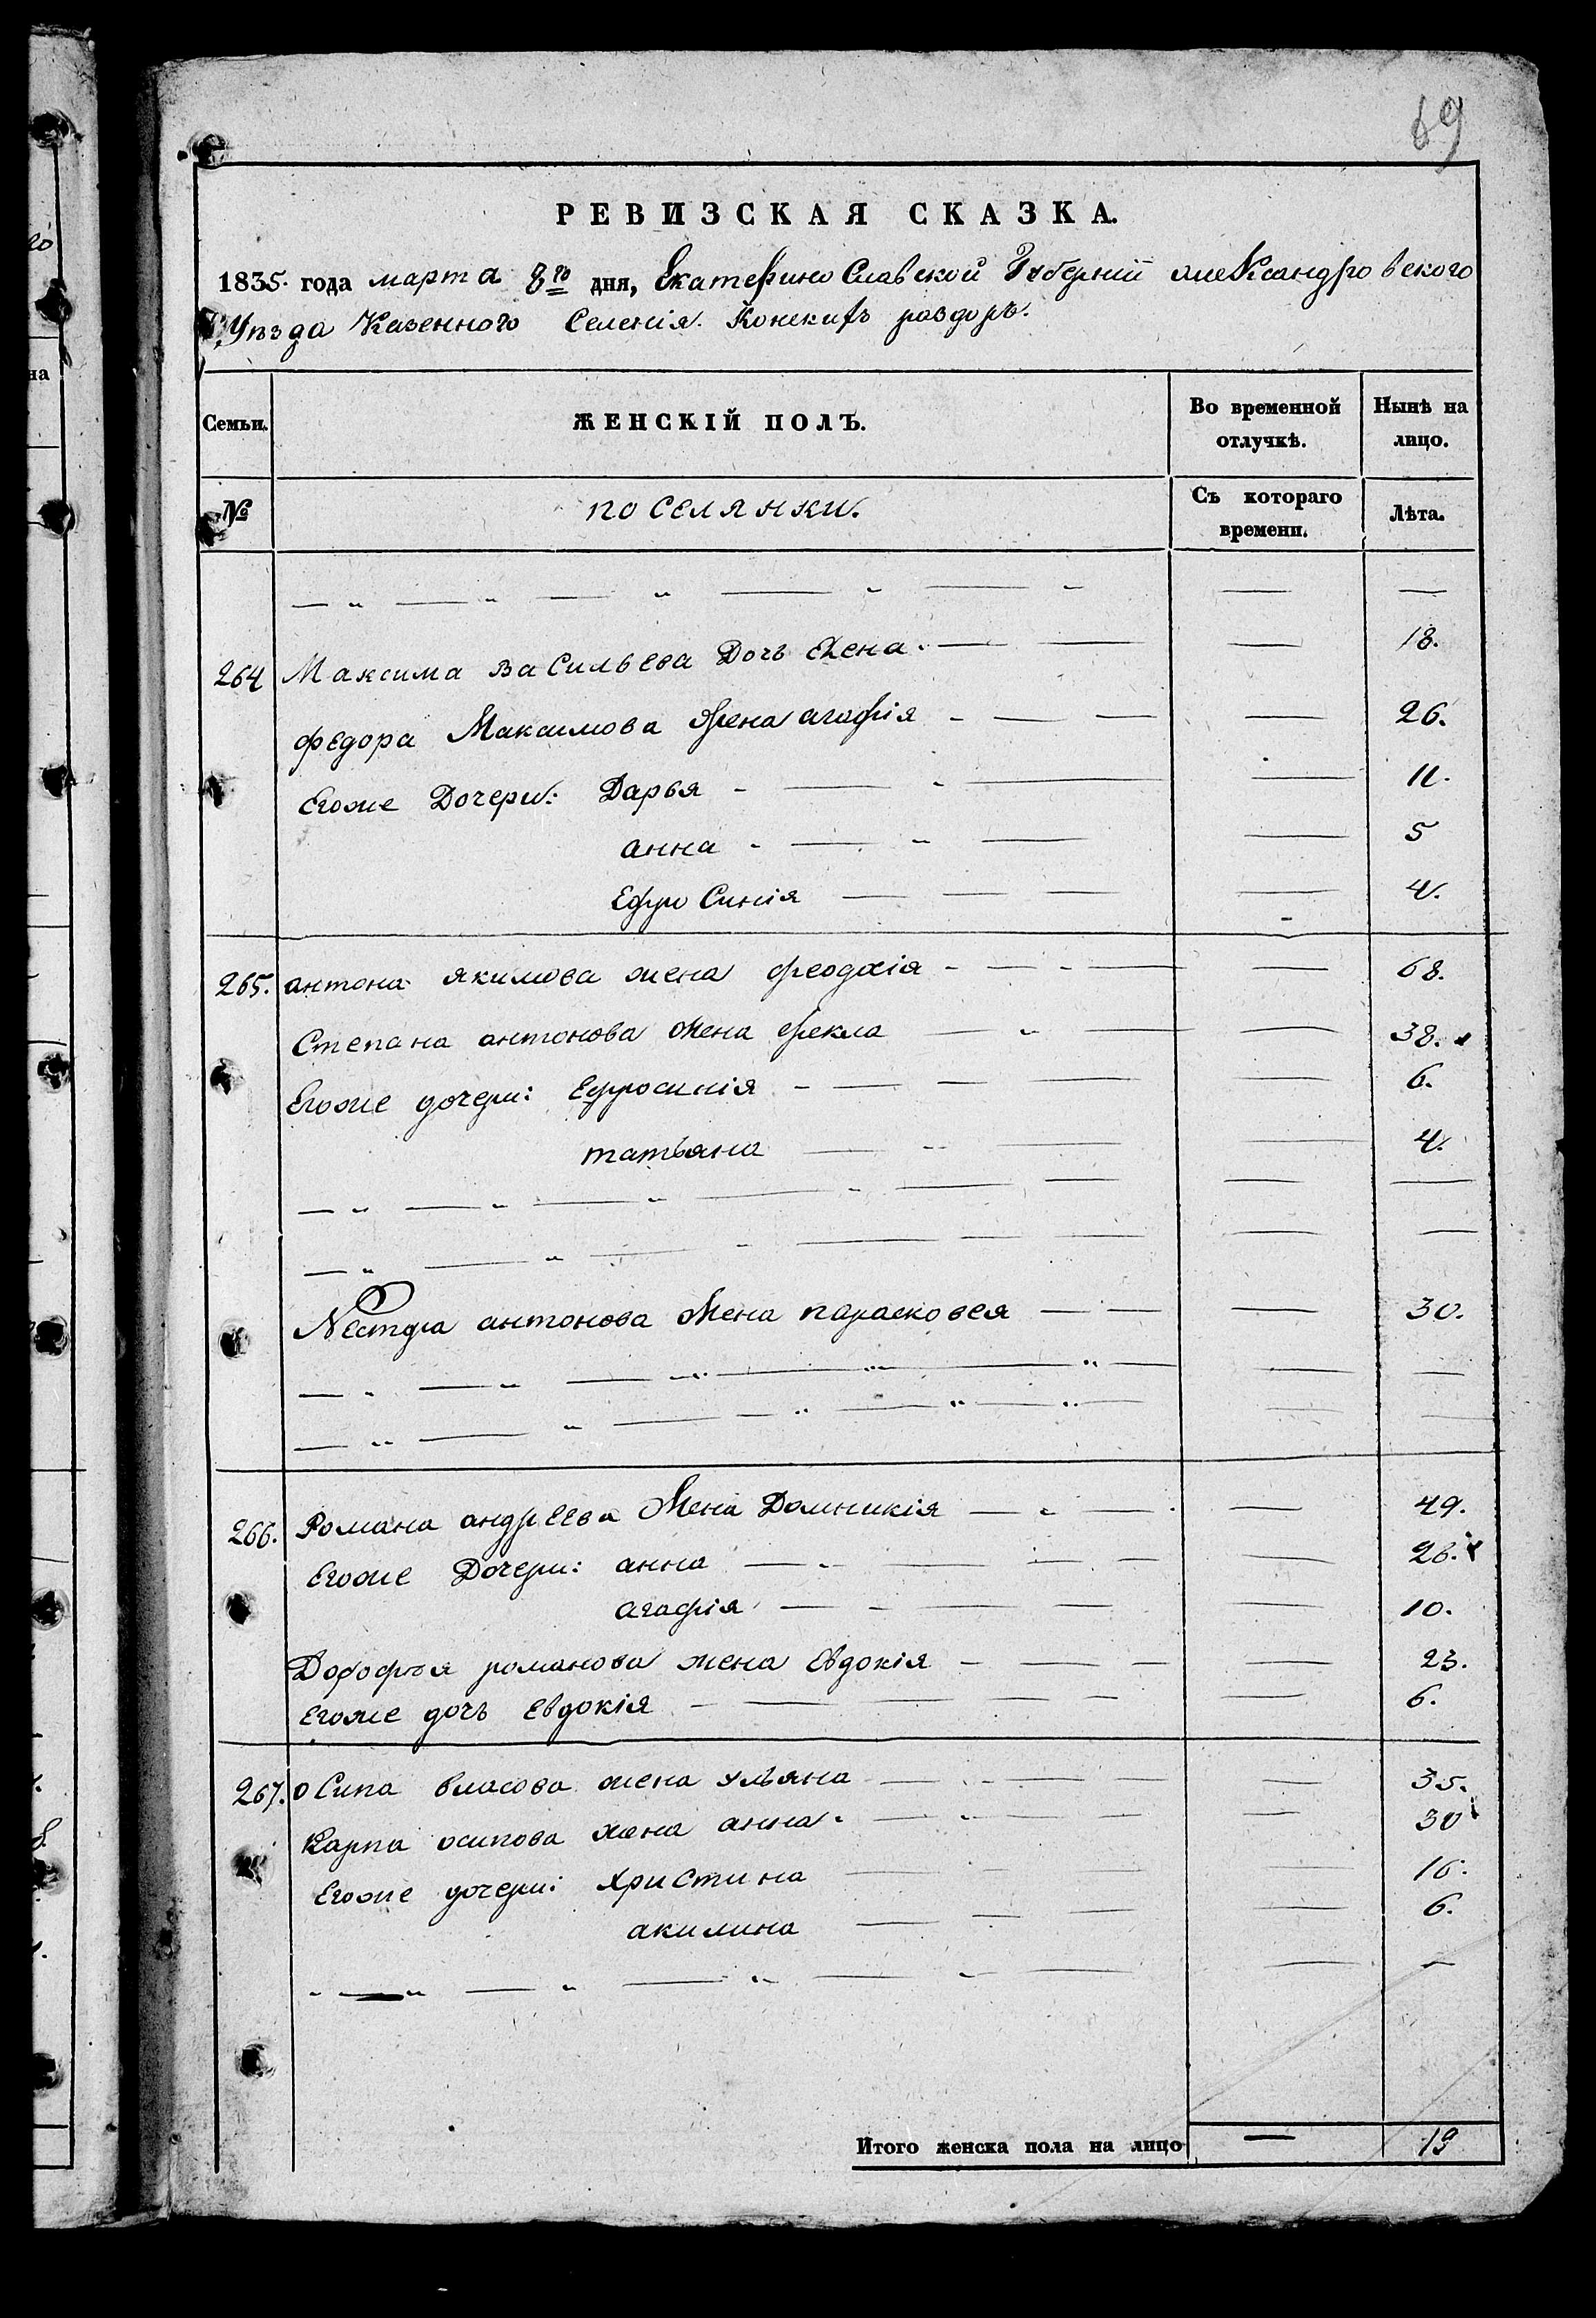 69
РЕВИЗСКАЯ СКАЗКА.
1835. года марта 8го дня, Екатерино Славской Губернiи алеКсандровского
Уезда Казенного Селенiя. Конскихъ раздоръ.
Семьи. ЖЕНСКIЙ ПОЛЪ. Во временной отлучкѣ. Нынѣ на лицо.
№ поселянки. Съ котораго времени. Лѣта.
264 Максима ваСильева Дочь Елена. 18.
федора Максимова жена агафiя 26.
Егоже Дочери: Дарья 11.
анна 5
ЕфроСинiя 4.
265. антона якимова жена феодосiя 68.
Степана антонова жена фекла 38.
Егоже дочери: Ефросинiя 6.
татьяна 4.
Нестора антонова жена парасковея 30.
266. Романа андреева жена Домникiя 49.
Егоже Дочери: анна 26.
агафiя 10.
Дорофѣя романова жена Евдокiя 23.
Егоже дочь Евдокiя 6.
267. оСипа власова жена ульяна 35.
Карпа осипова жена анна. 30
Егоже дочери: христина 16.
акилина 6.
Итого женска пола на лицо 19